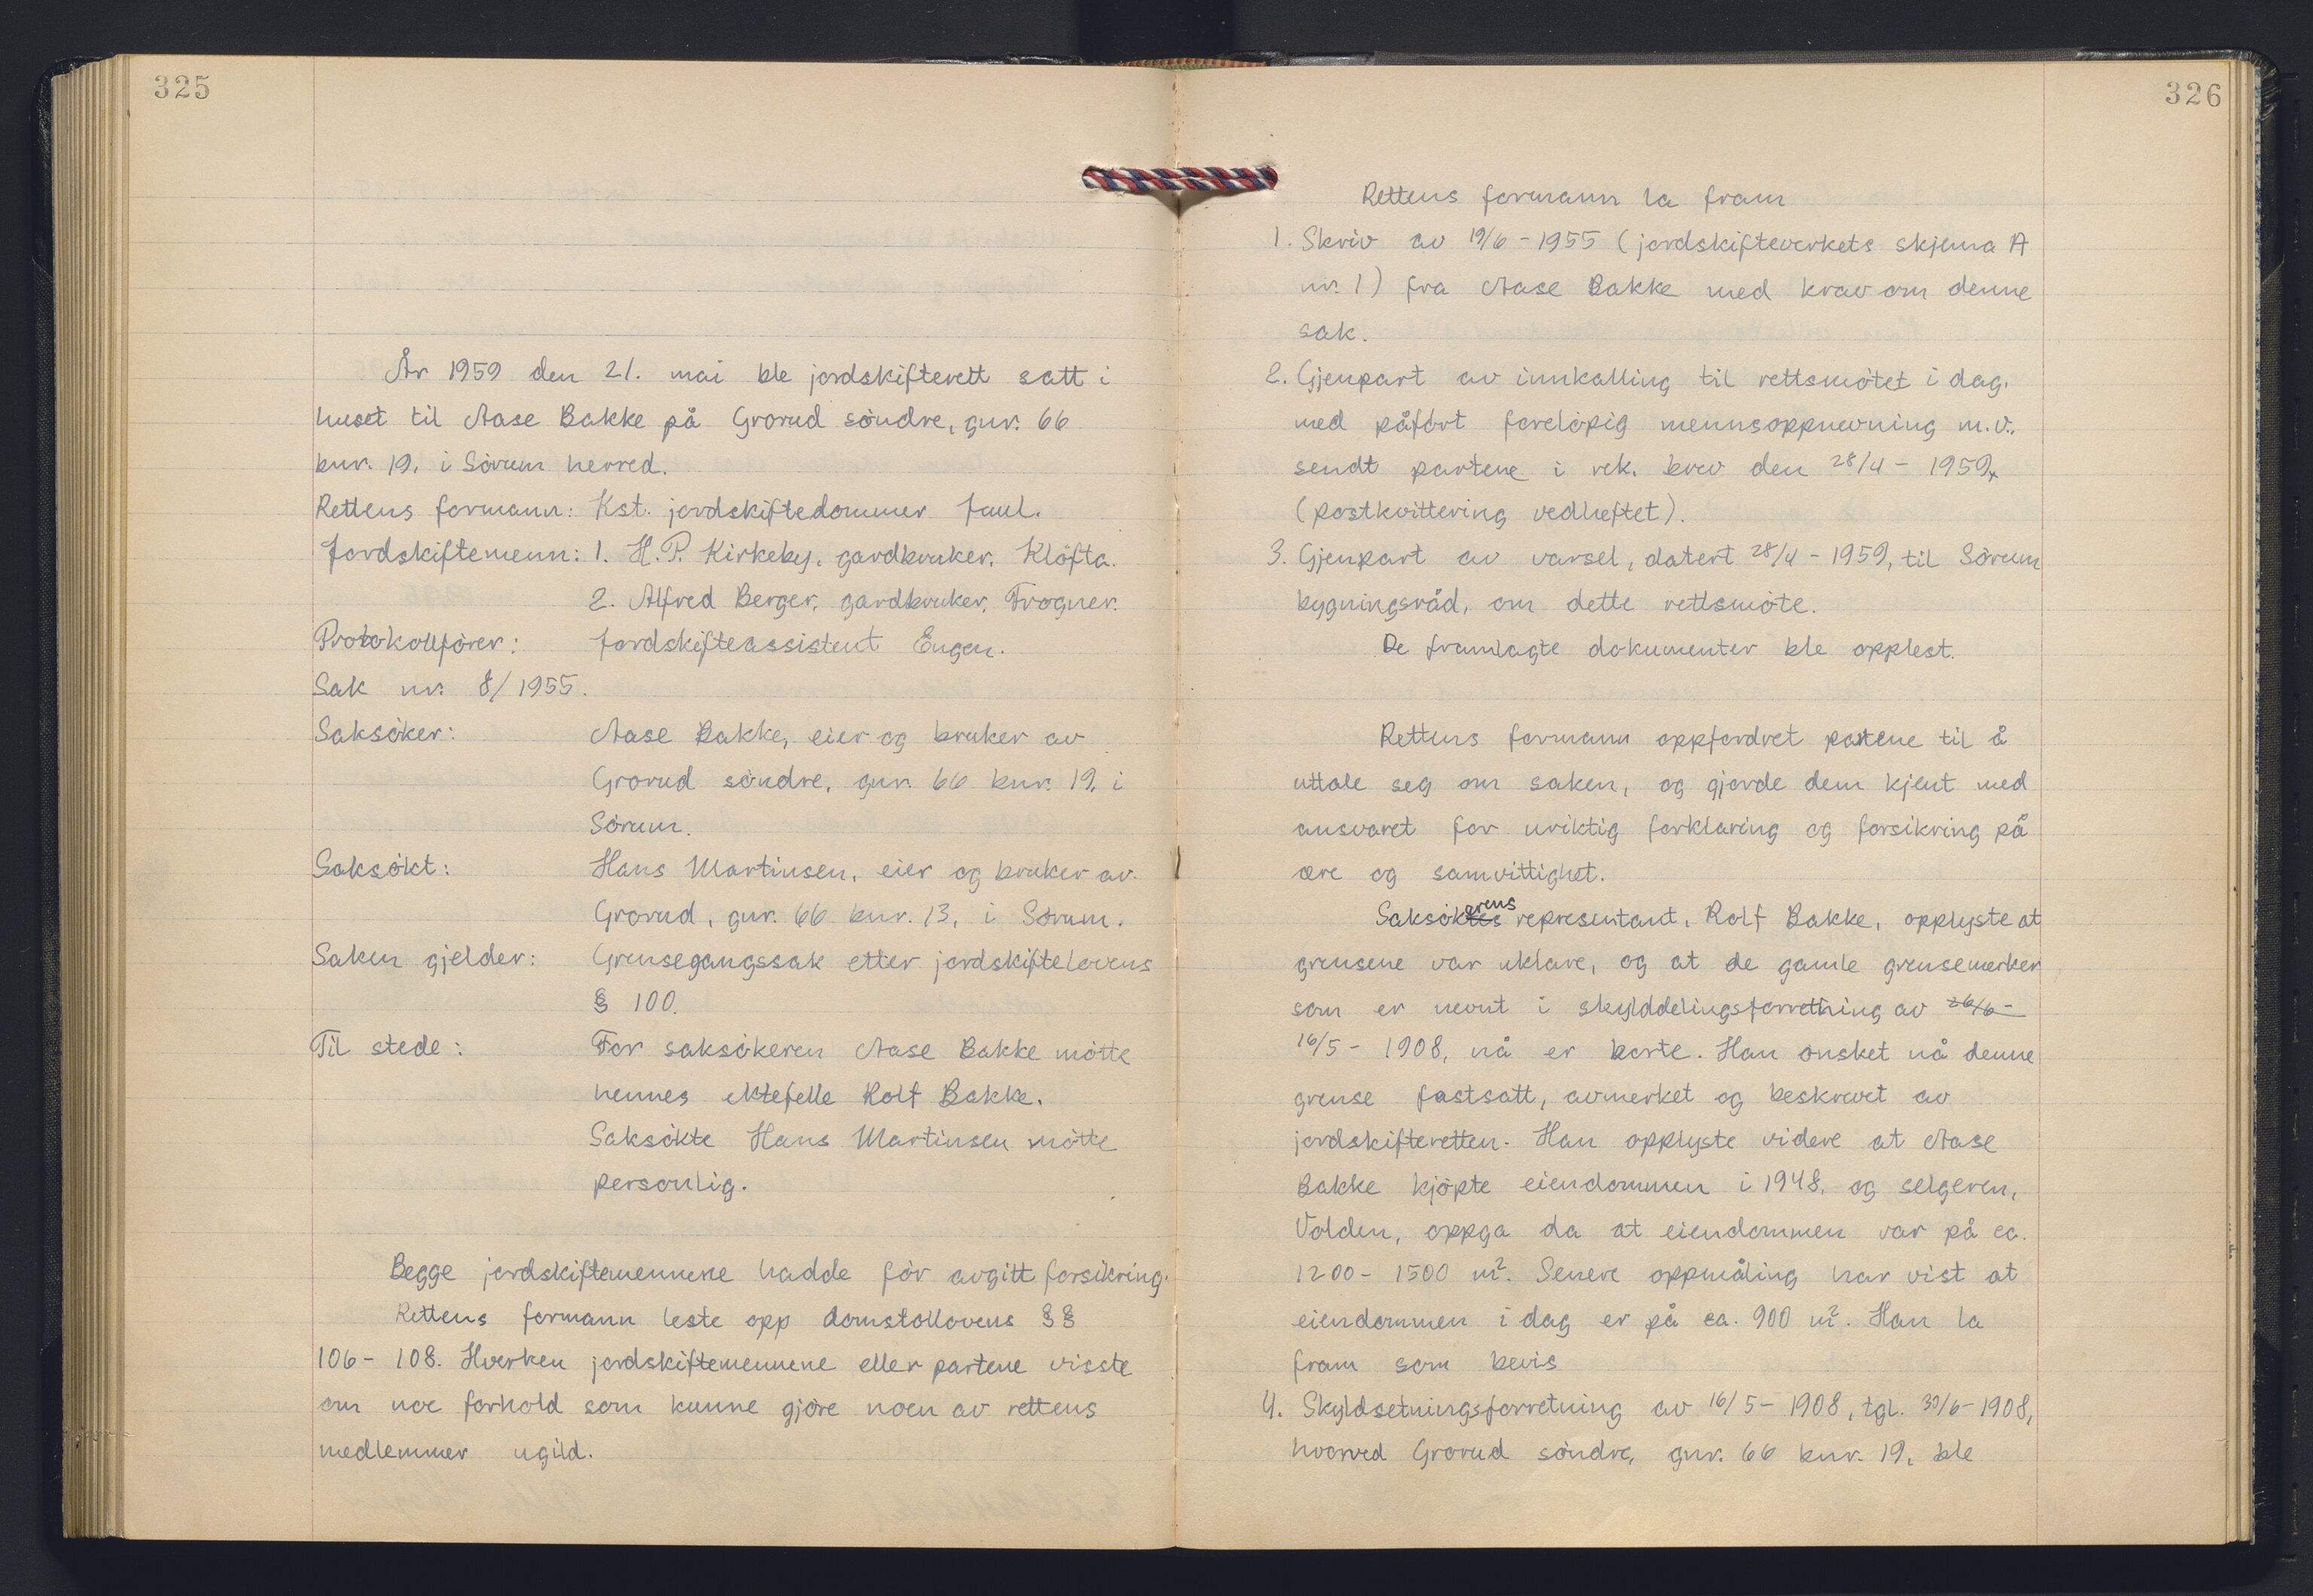 325
År 1959 den 21. mai ble jordskifterett satt i
huset til Aase Bakke på Grorud söndre, gnr. 66
bnr. 19, i Sörum herred.
Rettens formann: Kst. jordskiftedommer Juul.
Jordskiftemenn: 1. H.P. Kirkeby, gardbruker, Klöfta.
2. Alfred Berger, gardbruker, Frogner.
Protokollförer: Jordskifteassistent Engen.
Sak nr. 8/1955.
Saksöker: Aase Bakke, eier og bruker av
Grorud söndre, gnr. 66 bnr. 19, i
Sörum.
Saksökt: Hans Martinsen, eier og bruker av
Grorud, gnr. 66 bnr. 13, i Sörum.
Saken gjelder: Grensegangssak etter jordskiftelovens
§ 100.
Til stede: For saksökeren Aase Bakke mötte
hennes ektefelle Rolf Bakke.
Saksökte Hans Martinsen mötte
personlig.
Begge jordskiftemennene hadde för avgitt forsikring.
Rettens formann leste opp domstollovens §§
106- 108. Hverken jordskiftemennene eller partene visste
om noe forhold som kunne gjöre noen av rettens
medlemmer ugild.
326
Rettens formann la fram
1. Skriv av 19/6 - 1955 (jordskifteverkets skjema A
nr. 1) fra Aase Bakke med krav om denne
sak.
2. Gjenpart av innkalling til rettsmötet i dag,
med påfört forelöpig mennsoppnevning m.v.,
sendt partene i rek. brev den 28/4 - 1959
(postkvittering vedheftet).
3. Gjenpart av varsel, datert 28/4 - 1959, til Sörum
bygningsråd, om dette rettsmöte.
De framlagte dokumenter ble opplest.
Rettens formann oppfordret partene til å
uttale seg om saken, og gjorde dem kjent med
ansvaret for uriktig forklaring og forsikring på
ære og samvittighet.
Saksökerens representant, Rolf Bakke, opplyste at
grensene var uklare, og at de gamle grensemerker
som er nevnt i skylddelingsforretning av 26/6 -
16/5 - 1908, nå er borte. Han önsket nå denne
grense fastsatt, avmerket og beskrevet av
jordskifteretten. Han opplyste videre at Aase
Bakke kjöpte eiendommen i 1948, og selgeren,
Volden, oppga da at eiendommen var på ca.
1200 - 1500 m². Senere oppmåling har vist at
eiendommen i dag er på ca. 900 m². Han la
fram som bevis
4. Skyldsetningsforretning av 16/5 - 1908, tgl. 30/6 - 1908,
hvorved Grorud söndre, gnr. 66 bnr. 19, ble